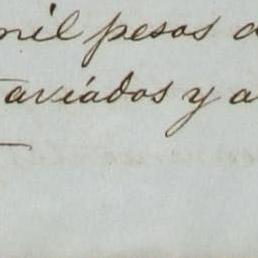 mil pesos d
taviados y a